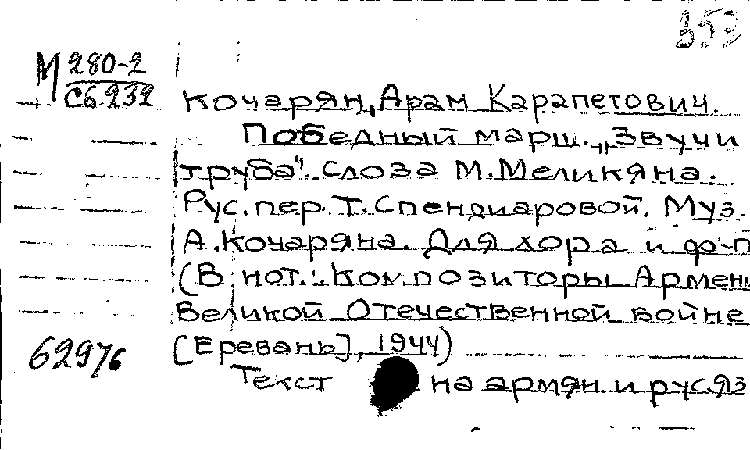 353
М 280-2
Сб.232
Кочарян, Арам Карапетович.
Победный марш. „Звучи
труба". Слова М. Меликяна.
Рус. пер. Т. Спендиаровой. Муз.
А. Кочаряна. Для хора и ф-п
(В нот.: Композиторы Армени
Великой Отечественной войне
[Еревань], 1944)
62976
Текст на армян. и рус. яз